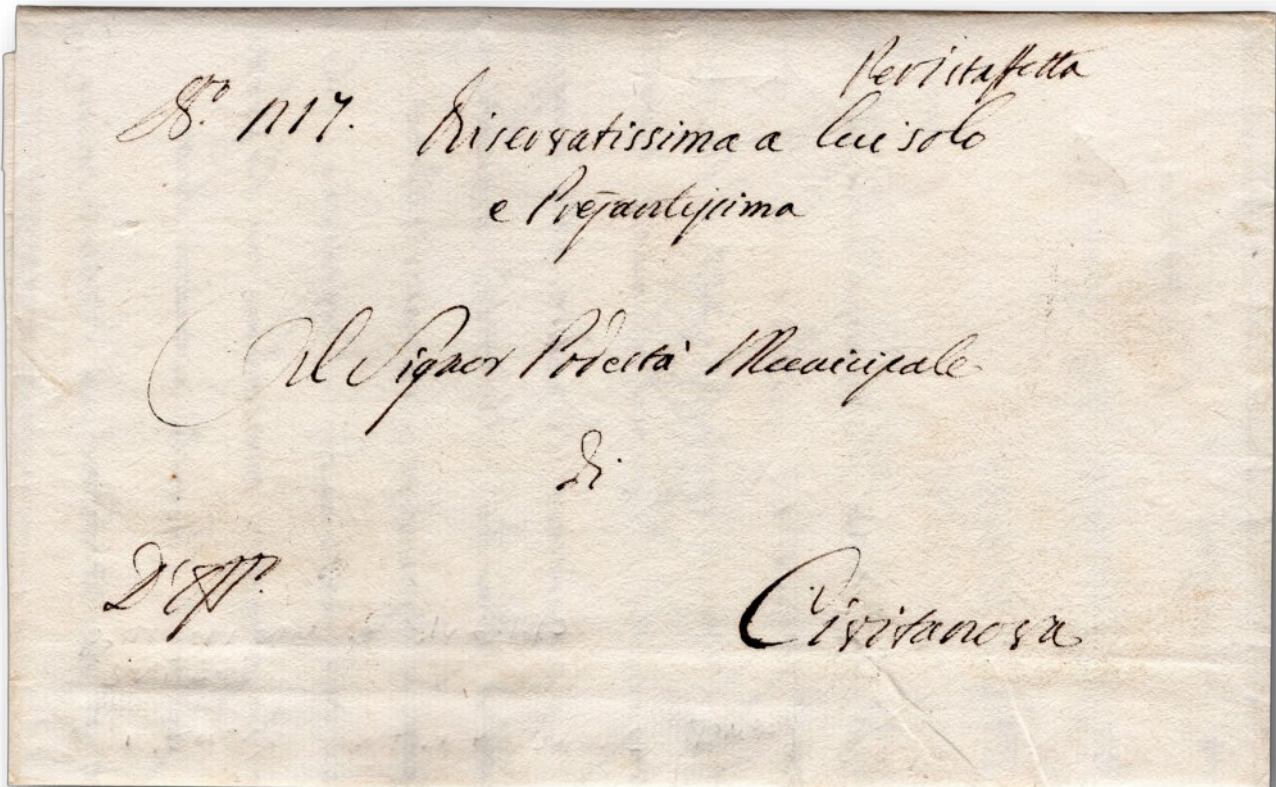 Per istaffetta
N.º 1717. Riservatissima a lui solo
e Pressantissima
Al Signor Podestà Municipale
di
D'Uff.º
Civitanova